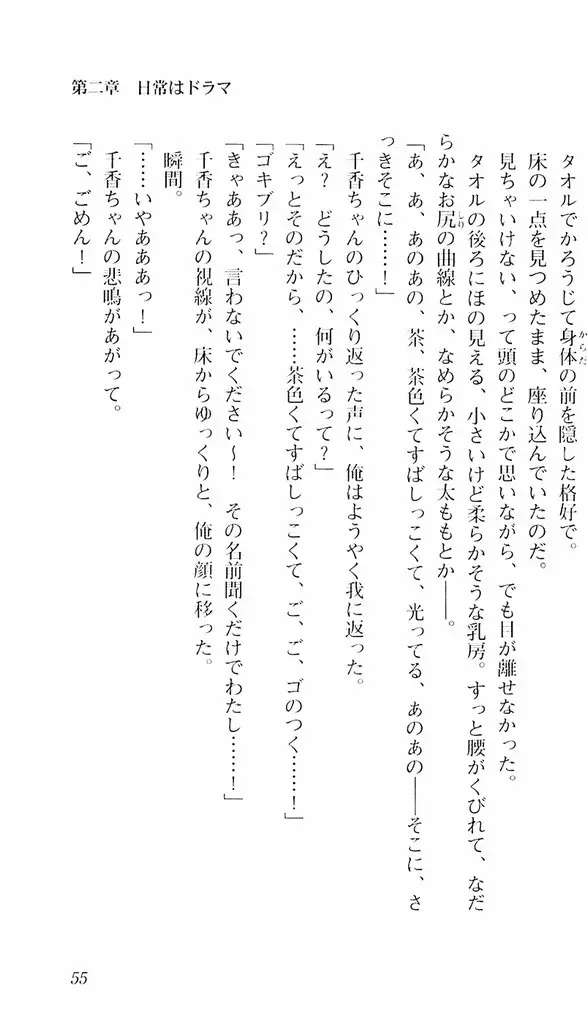 第二章　日常はドラマ
タオルでかろうじて身体の前を隠した格好で。
床の一点を見つめたまま、座り込んでいたのだ。
見ちゃいけない、って頭のどこかで思いながら、でも目が離せなかった。
タオルの後ろにほの見える、小さいけど柔らかそうな乳房。すっと腰がくびれて、なだ
らかなお尻の曲線とか、なめらかそうな太ももとか――。
「あ、あ、あのあの、茶、茶色くてすばしっこくて、光ってる、あのあの――そこに、さ
っきそこに……！」
千香ちゃんのひっくり返った声に、俺はようやく我に返った。
「え？　どうしたの、何がいるって？」
「えっとそのだから、……茶色くてすばしっこくて、ご、ご、ゴのつく……！」
「ゴキブリ？」
「きゃああっ、言わないでください～！　その名前聞くだけでわたし……！」
千香ちゃんの視線が、床からゆっくりと、俺の顔に移った。
瞬間。
「……いやあああっ！」
千香ちゃんの悲鳴があがって。
「ご、ごめん！」
55